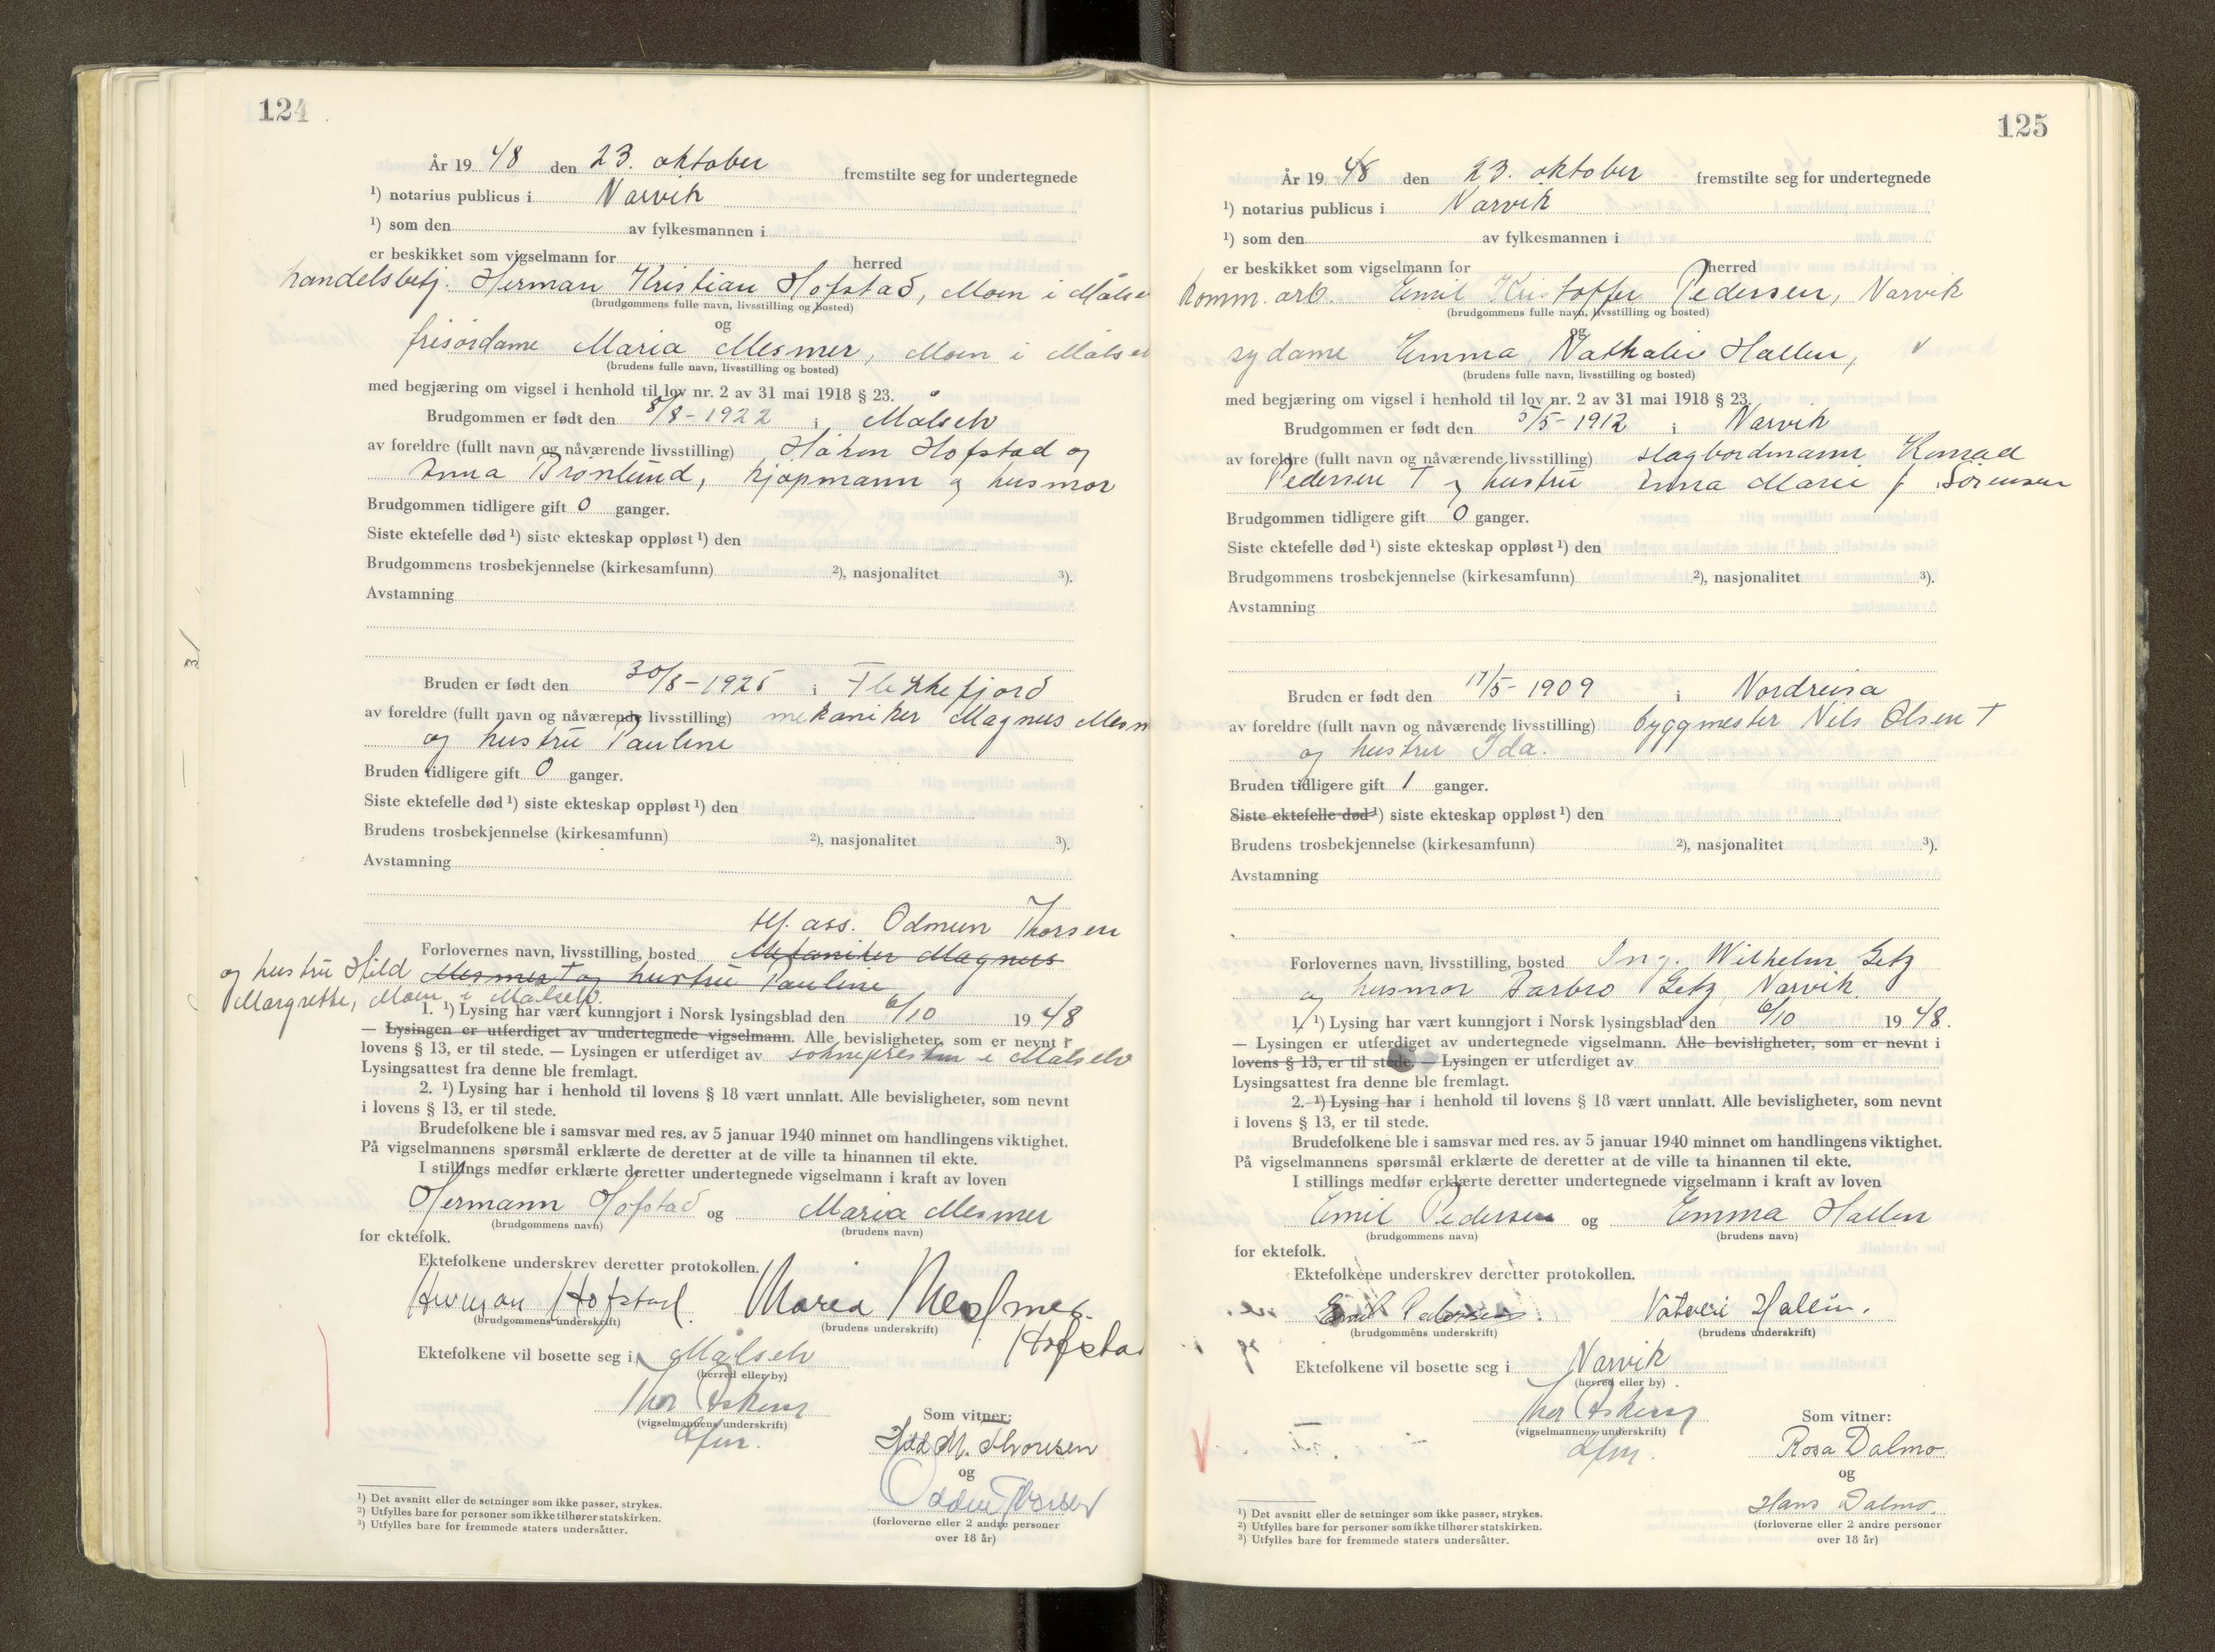 124
År 19 48 den 23. oktober fremstilte seg for undertegnede
¹) notarius publicus i Narvik
¹) som den av fylkesmannen i
er beskikket som vigselmann for herred
handelsbetj. Herman Kristian Hofstad, Moen i
(brudgommens fulle navn, livsstilling og bosted)
og
frisørdame Maria Mesmer, Moen i
(brudens fulle navn, livsstilling og bosted)
med begjæring om vigsel i henhold til lov nr. 2 av 31 mai 1918 § 23.
Brudgommen er født den 8/8-1922 i Målselv
av foreldre (fullt navn og nåværende livsstilling) Håkon Hofstad og
Anna Brønlund, kjøpmann og husmor
Brudgommen tidligere gift 0 ganger.
Siste ektefelle død ¹) siste ekteskap oppløst ¹) den
Brudgommens trosbekjennelse (kirkesamfunn) ²), nasjonalitet ³).
Avstamning
Bruden er født den 30/8-1925 i Flekkefjord
av foreldre (fullt navn og nåværende livsstilling) mekaniker Magnus
og hustru Pauline
Bruden tidligere gift 0 ganger.
Siste ektefelle død ¹) siste ekteskap oppløst ¹) den
Brudens trosbekjennelse (kirkesamfunn) ²), nasjonalitet ³).
Avstamning
ass. Odmun Thorsen
Forlovernes navn, livsstilling, bosted Mekaniker Magnus
og hustru Hild Mesmer † og hustru Pauline
Margrethe, Moen i Målselv.
1. ¹) Lysing har vært kunngjort i Norsk lysingsblad den 6/10 19 48
— Lysingen er utferdiget av undertegnede vigselmann. Alle bevisligheter, som er nevnt i
lovens § 13, er til stede. — Lysingen er utferdiget av soknepresten i Målselv
Lysingsattest fra denne ble fremlagt.
2. ¹) Lysing har i henhold til lovens § 18 vært unnlatt. Alle bevisligheter, som nevnt
i lovens § 13, er til stede.
Brudefolkene ble i samsvar med res. av 5 januar 1940 minnet om handlingens viktighet.
På vigselmannens spørsmål erklærte de deretter at de ville ta hinannen til ekte.
I stillings medfør erklærte deretter undertegnede vigselmann i kraft av loven
Hermann Hofstad og Maria Mesmer
(brudgommens navn) (brudens navn)
for ektefolk.
Ektefolkene underskrev deretter protokollen.
Herman Hofstad. Maria Mesmer
(brudgommens underskrift) (brudens underskrift)
Hofstad
Ektefolkene vil bosette seg i Målselv
(herred eller by)
Thor
(vigselmannens underskrift)
Som vitner:
Hild M. Thoresen
og
(forloverne eller 2 andre personer
over 18 år)
¹) Det avsnitt eller de setninger som ikke passer, strykes.
²) Utfylles bare for personer som ikke tilhører statskirken.
³) Utfylles bare for fremmede staters undersåtter.
125
År 19 48 den 23. oktober fremstilte seg for undertegnede
¹) notarius publicus i Narvik
¹) som den av fylkesmannen i
er beskikket som vigselmann for herred
Komm. arb. Emil Kristoffer Pedersen, Narvik
(brudgommens fulle navn, livsstilling og bosted)
og
sydame Emma Nathalie Hallen,
(brudens fulle navn, livsstilling og bosted)
med begjæring om vigsel i henhold til lov nr. 2 av 31 mai 1918 § 23.
Brudgommen er født den 5/5-1912 i Narvik
av foreldre (fullt navn og nåværende livsstilling) Konrad
Pedersen † og hustru Anna Marie f. Sørensen
Brudgommen tidligere gift 0 ganger.
Siste ektefelle død ¹) siste ekteskap oppløst ¹) den
Brudgommens trosbekjennelse (kirkesamfunn) ²), nasjonalitet ³).
Avstamning
Bruden er født den 17/5-1909 i Nordreisa
av foreldre (fullt navn og nåværende livsstilling) byggmester Nils Olsen †
og hustru Ida.
Bruden tidligere gift 1 ganger.
Siste ektefelle død ¹) siste ekteskap oppløst ¹) den
Brudens trosbekjennelse (kirkesamfunn) ²), nasjonalitet ³).
Avstamning
Forlovernes navn, livsstilling, bosted Ing. Wilhelm Getz
og husmor Barbro Getz, Narvik.
1. ¹) Lysing har vært kunngjort i Norsk lysingsblad den 6/10 19 48.
— Lysingen er utferdiget av undertegnede vigselmann. Alle bevisligheter, som er nevnt i
lovens § 13, er til stede. — Lysingen er utferdiget av
Lysingsattest fra denne ble fremlagt.
2. ¹) Lysing har i henhold til lovens § 18 vært unnlatt. Alle bevisligheter, som nevnt
i lovens § 13, er til stede.
Brudefolkene ble i samsvar med res. av 5 januar 1940 minnet om handlingens viktighet.
På vigselmannens spørsmål erklærte de deretter at de ville ta hinannen til ekte.
I stillings medfør erklærte deretter undertegnede vigselmann i kraft av loven
Emil Pedersen og Emma Hallen
(brudgommens navn) (brudens navn)
for ektefolk.
Ektefolkene underskrev deretter protokollen.
Emil Pedersen. Hallen.
(brudgommens underskrift) (brudens underskrift)
Ektefolkene vil bosette seg i Narvik
(herred eller by)
Thor
(vigselmannens underskrift)
Som vitner:
Rosa Dalmo
og
Hans Dalmo
(forloverne eller 2 andre personer
over 18 år)
¹) Det avsnitt eller de setninger som ikke passer, strykes.
²) Utfylles bare for personer som ikke tilhører statskirken.
³) Utfylles bare for fremmede staters undersåtter.